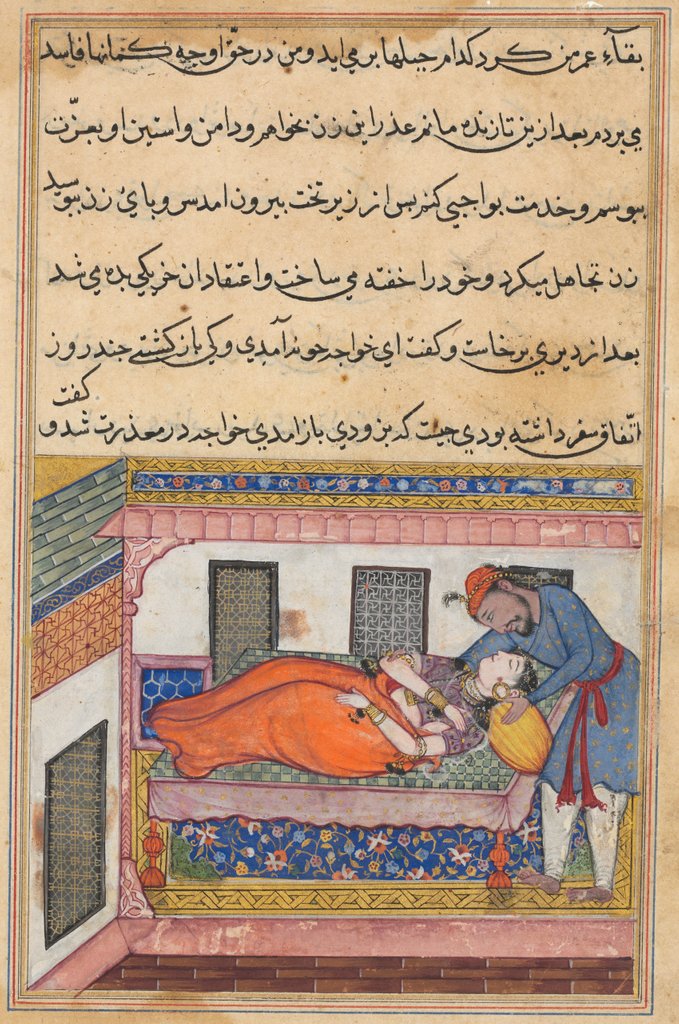 بقآءِ عمر من کرد کدام حیلها بر می اید و من در حقّ او چه کمانها فاسد
می بردم بعد ازین تا زنده مانم عذر این زن بخواهم و دامن و استین او بعزّت
ببوسم و خدمت بواجبی کنم بس از زیر تخت بیرون امد سر و بای زن ببوسید
زن تجاهل میکرد و خود را خفته می ساخت و اعتقاد ان خر یکی بده می شد
بعد از دیری برخاست و کفت ای خواجه جوند آمدی و کی باز کشتی چند روز
اتّفاق سفر داشته بودی چیست که بزودی باز امدی خواجه در معذرت شد و کفت